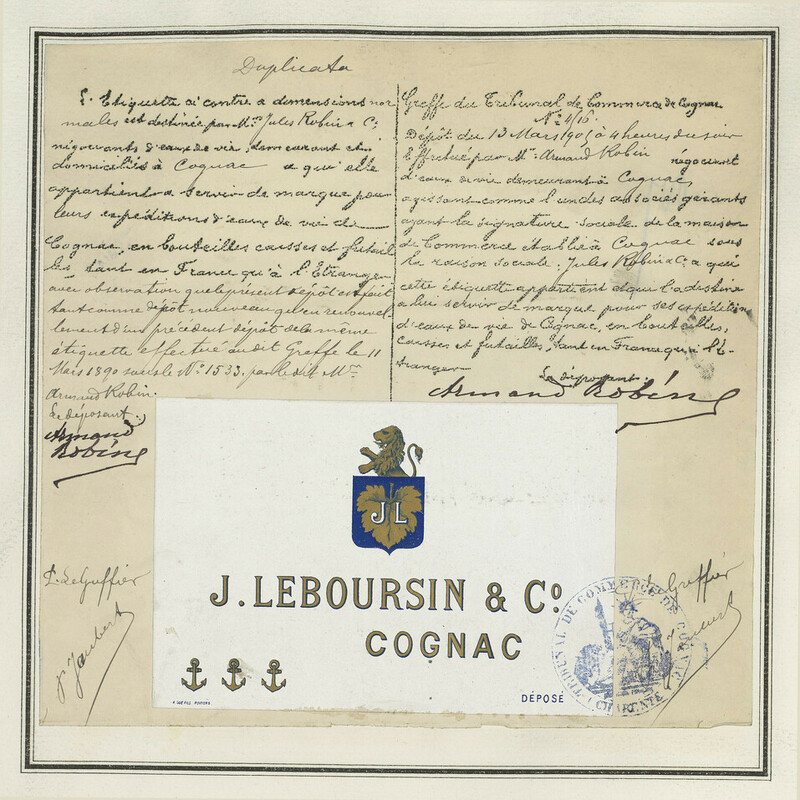 Duplicata
L'Etiquette ci contre a dimensions nor
males est destinée par Mrs Jules Robin & Cie
négociants d'eaux de vie, demeurant et
domiciliés à Cognac a qui elle
appartient a servir de marque pour
leurs expéditions d'eaux de vie de
Cognac, en bouteilles caisses et futail
les, tant en France qu'à l'Etranger
avec observation que le présent dépôt est fait
tant comme dépôt nouveau qu'en renouvel
lement d'un précédent dépôt de la même
étiquette effectué au dit Greffe le 11
Mars 1890 sous le No 1533. par le dit Mr
Armand Robin.
Le déposant.
Armand
Robin
Greffe du Tribunal de Commerce de Cognac
No 4116.
Dépôt du 13 Mars 1905 à 4 heures du soir
Effectué par Mr Armand Robin négociant
d'eaux de vie demeurant à Cognac,
agissant comme l'un des associés gérants
ayant la signature sociale de la maison
de Commerce établie à Cognac sous
la raison sociale: Jules Robin & Cie a qui
cette étiquette appartient et qui l'a destine
a lui servir de marque pour ses expéditions
d'eaux de vie de Cognac, en bouteilles,
caisses et futailles, tant en France qu'à l'É-
tranger
Le déposant.
Armand Robin
JL
J. LEBOURSIN & Co
COGNAC
DÉPOSÉ
P. Le Greffier
P. Jaubert
Le Greffier
Jaubert
TRIBUNAL DE COMMERCE DE COGNAC
CHARENTE